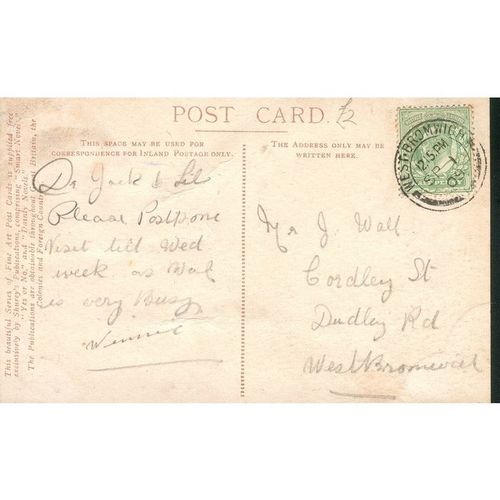 POST CARD.
£2
THIS SPACE MAY BE USED FOR
CORRESPONDENCE FOR INLAND POSTAGE ONLY.
THE ADDRESS ONLY MAY BE
WRITTEN HERE.
This beautiful Series of Fine Art Post Cards is supplied free
exclusively by Shurey's Publications, comprising "Smart Novels,"
"Yes or No," and "Dainty Novels."
The Publications are obtainable throughout Great Britain, the
Colonies and Foreign Countries.
Dr Jack & Lil
Please Postpone
Visit till Wed
week as
is very Busy
Winnie
Mr J. Wall
Cordley St
Dudley Rd
West Bromwich
WEST BROMWICH
12.15 PM
SP 1
09